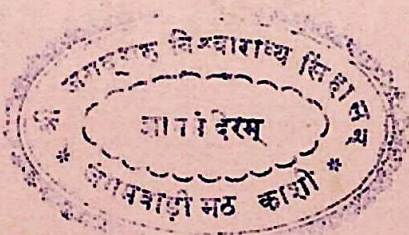 जगद्गुरु विश्वाराध्य सिंहासन
ज्ञानमंदिरम्
जंगमवाड़ी मठ काशी